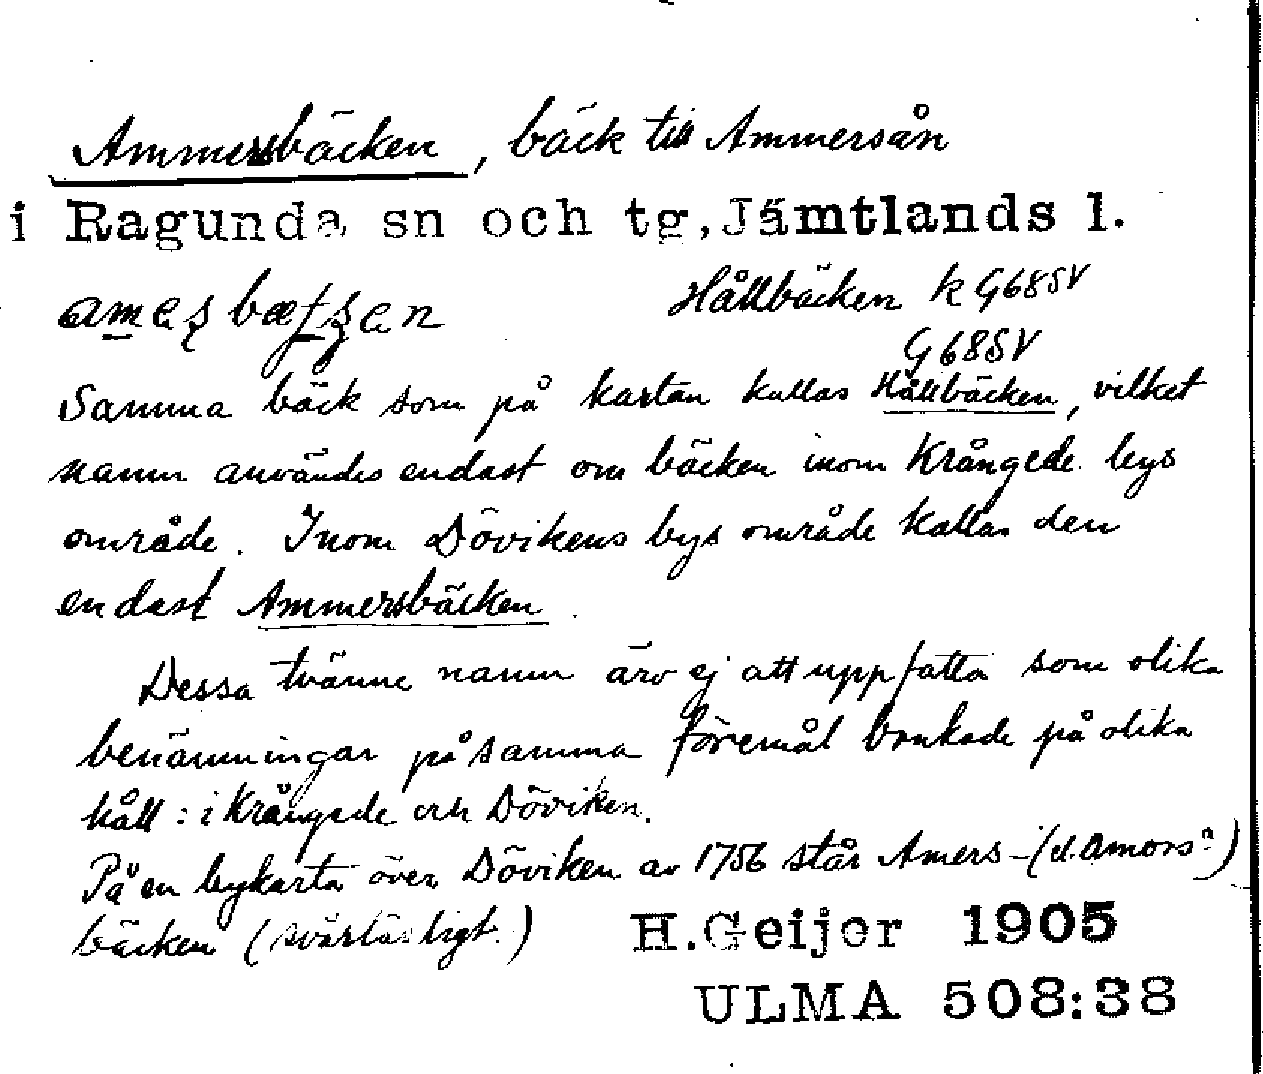 Ammersbäcken, bäck till Ammersån
i Ragunda sn och tg, Jämtlands l.
Hållbäcken k G68SV
G68SV
Samma bäck som på kartan kallas Hållbäcken, vilket
namn användes endast om bäcken inom Krångede bys
område. Inom Dövikens bys område kallas den
endast Ammersbäcken.
Dessa tvänne namn äro ej att uppfatta som olika
benämningar på samma föremål brukade på olika
håll: i Krångede och Döviken.
På en bykarta över Döviken av 1756 står Amers-(el. Amors?)
bäcken (svårläsligt.)
H. Geijer 1905
ULMA 508:38